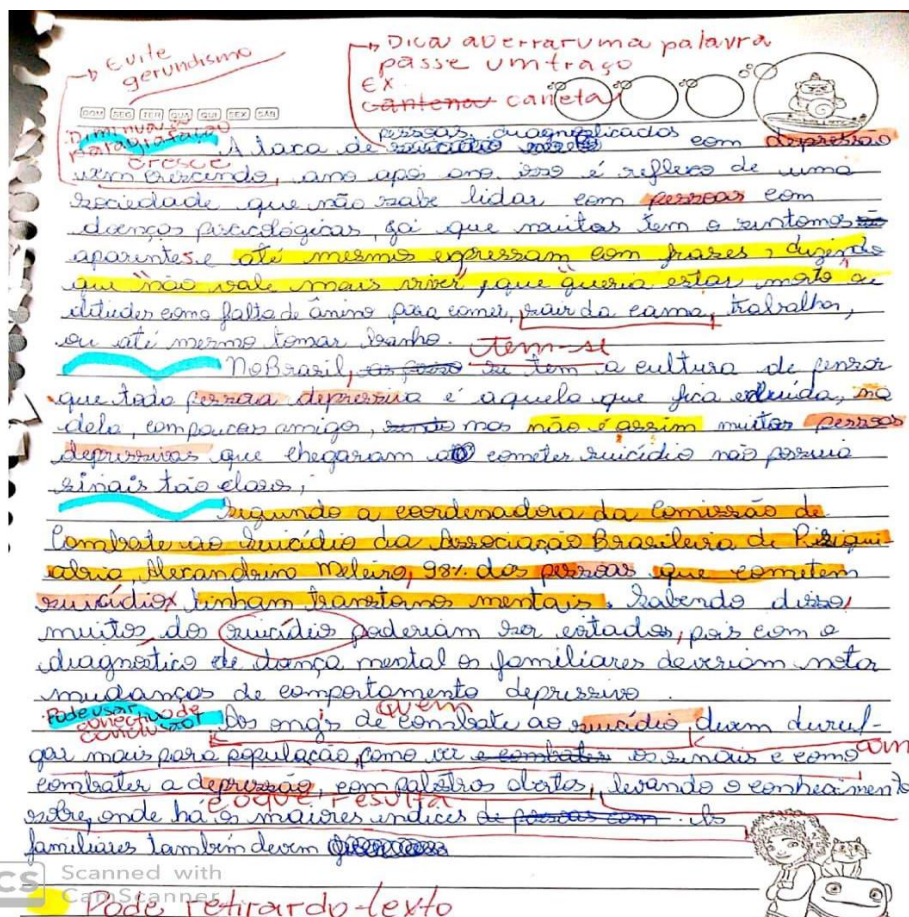 Evite
gerundismo
Dica ao errar uma palavra
passe um traço
EX
cantena caneta
DOM SEG TER QUA QUI SEX SAB
Diminua a
paragrafação
cresce
pessoas diagnosticados
A taxa de suicídio com depressão
vem crescendo, ano após ano. isso é reflexo de uma
sociedade que não sabe lidar com pessoas com
doenças piscicológicas, já que muitas tem o sintomas
aparentes e até mesmo expressam com frases, dizendo
que "não vale mais viver", que queria estar morto e
atitudes como falta de ânimo para comer, sair da cama, trabalhar,
ou até mesmo tomar banho.
tem-se
No Brasil, se tem a cultura de pensar
que toda pessoa depressiva é aquela que fica excluída, na
dela, com poucos amigos, mas não é assim muitas pessoas
depressivas que chegaram a cometer suicídio não possuia
sinais tão claros,
Segundo a coordenadora da Comissão de
Combate ao Suicídio da Associação Brasileira de Pisiqui
atria, Alexandrina Meleiro, 98% das pessoas que cometem
suicídio tinham transtornos mentais. Sabendo disso,
muitos dos suicídios poderiam ser evitados, pois com o
diagnostico de doença mental os familiares deveriam notar
mudanças de comportamento depressivo.
Pode usar
conectivo de
conclusão!
quem
As ong's de combate ao suicídio devem divul-
gar mais para população, como ver e combater os sinais e como
com
combater a depressão, com palestras abertas, levando o conhecimento
e o que resulta
sobre, onde há os maiores indices de pessoas com. Os
familiares também devem
CS Scanned with
CamScanner
Pode retirar do texto